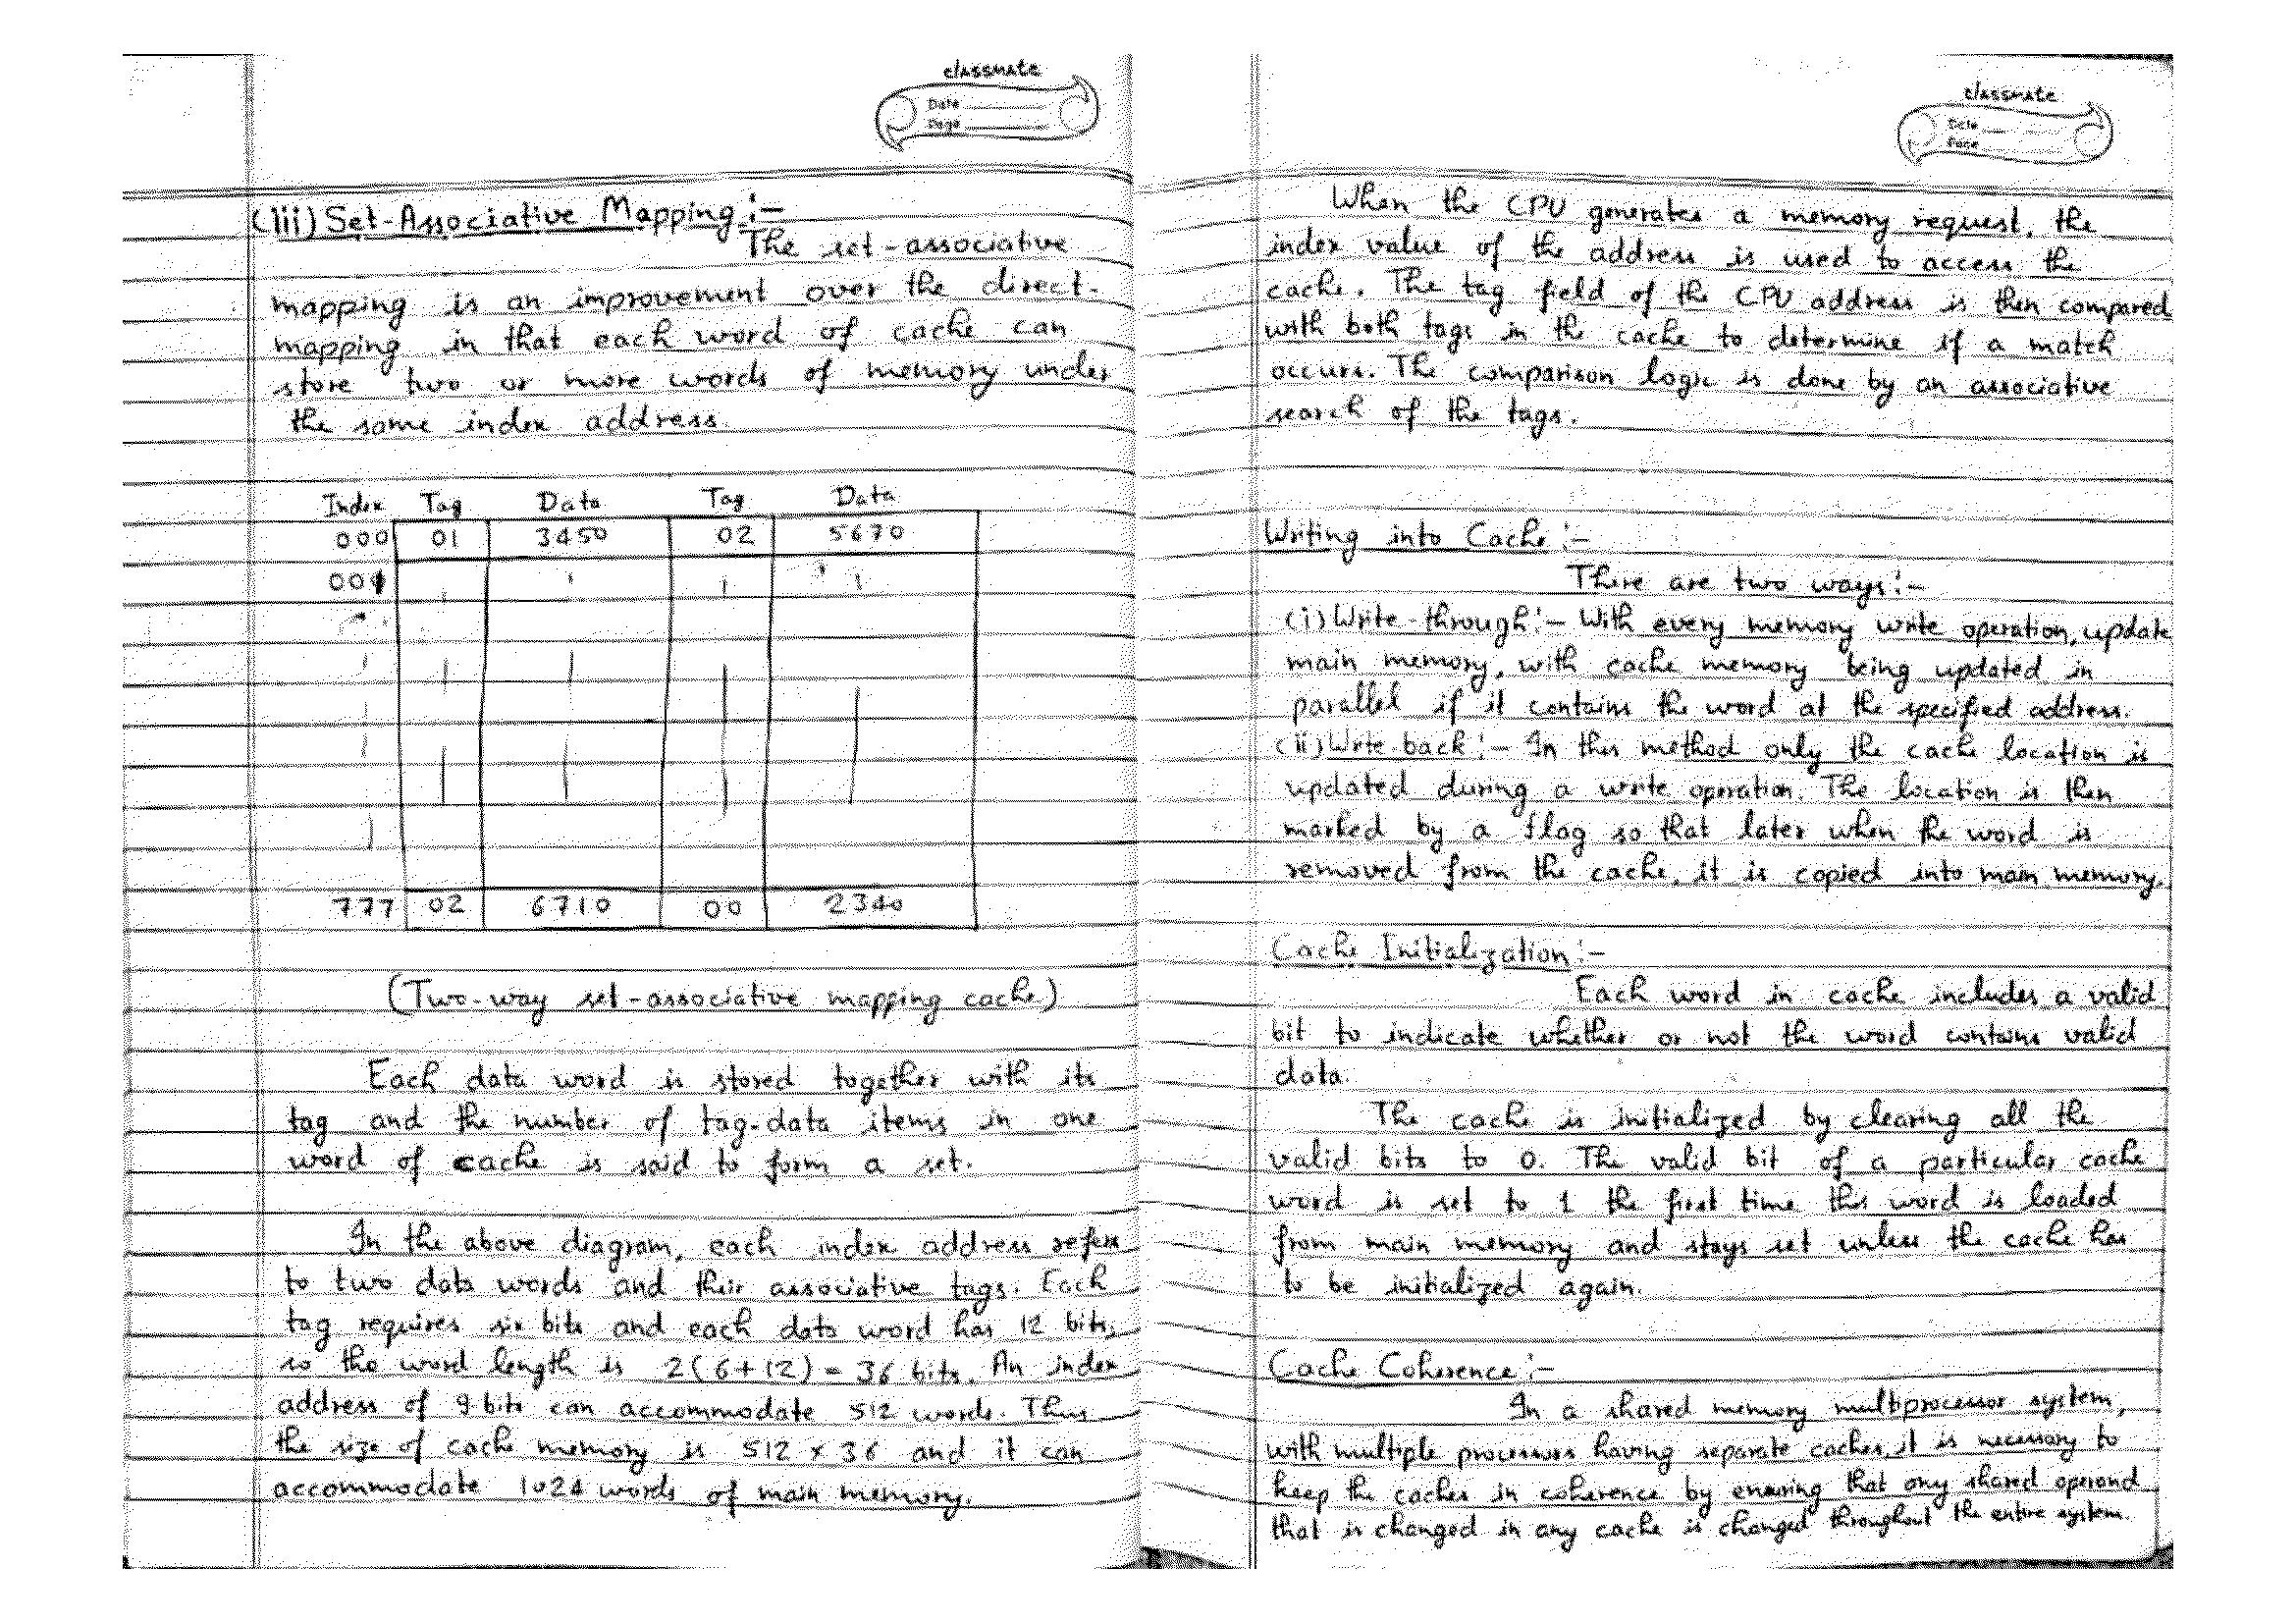 classmate
Date
Page
(iii) Set-Associative Mapping :-
The set-associative
mapping is an improvement over the direct-
mapping in that each word of cache can
store two or more words of memory under
the same index address.
Index Tag Data Tag Data
000 01 3450 02 5670
001
777 02 6710 00 2340
(Two-way set-associative mapping cache)
Each data word is stored together with its
tag and the number of tag-data items in one
word of cache is said to form a set.
In the above diagram, each index address refers
to two data words and their associative tags. Each
tag requires six bits and each data word has 12 bits,
so the word length is 2(6+12) = 36 bits. An index
address of 9 bits can accommodate 512 words. Thus
the size of cache memory is 512 x 36 and it can
accommodate 1024 words of main memory.
classmate
Date
Page
When the CPU generates a memory request, the
index value of the address is used to access the
cache. The tag field of the CPU address is then compared
with both tags in the cache to determine if a match
occurs. The comparison logic is done by an associative
search of the tags.
Writing into Cache :-
There are two ways :-
(i) Write-through :- With every memory write operation, update
main memory, with cache memory being updated in
parallel if it contains the word at the specified address.
(ii) Write-back :- In this method only the cache location is
updated during a write operation. The location is then
marked by a flag so that later when the word is
removed from the cache, it is copied into main memory.
Cache Initialization :-
Each word in cache includes a valid
bit to indicate whether or not the word contains valid
data.
The cache is initialized by clearing all the
valid bits to 0. The valid bit of a particular cache
word is set to 1 the first time this word is loaded
from main memory and stays set unless the cache has
to be initialized again.
Cache Coherence :-
In a shared memory multiprocessor system,
with multiple processors having separate caches, it is necessary to
keep the caches in coherence by ensuring that any shared operand
that is changed in any cache is changed throughout the entire system.